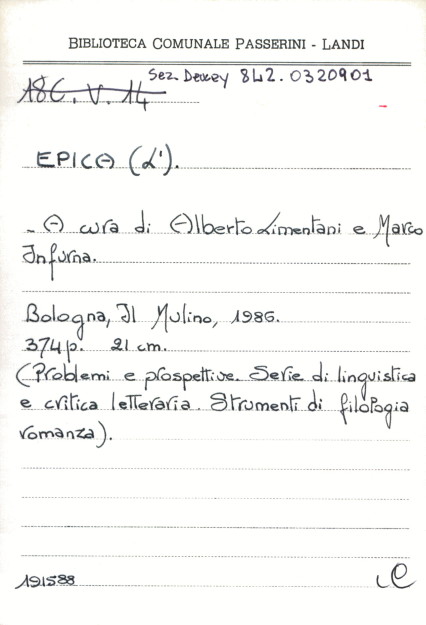 BIBLIOTECA COMUNALE PASSERINI - LANDI
Sez. Dewey 842.0320901
18C. V. 14
EPICA (L').
- A cura di Alberto Limentani e Marco
Infurna.
Bologna, Il Mulino, 1986.
374p. 21 cm.
(Problemi e prospettive. Serie di linguistica
e critica letteraria. Strumenti di filologia
romanza).
191588